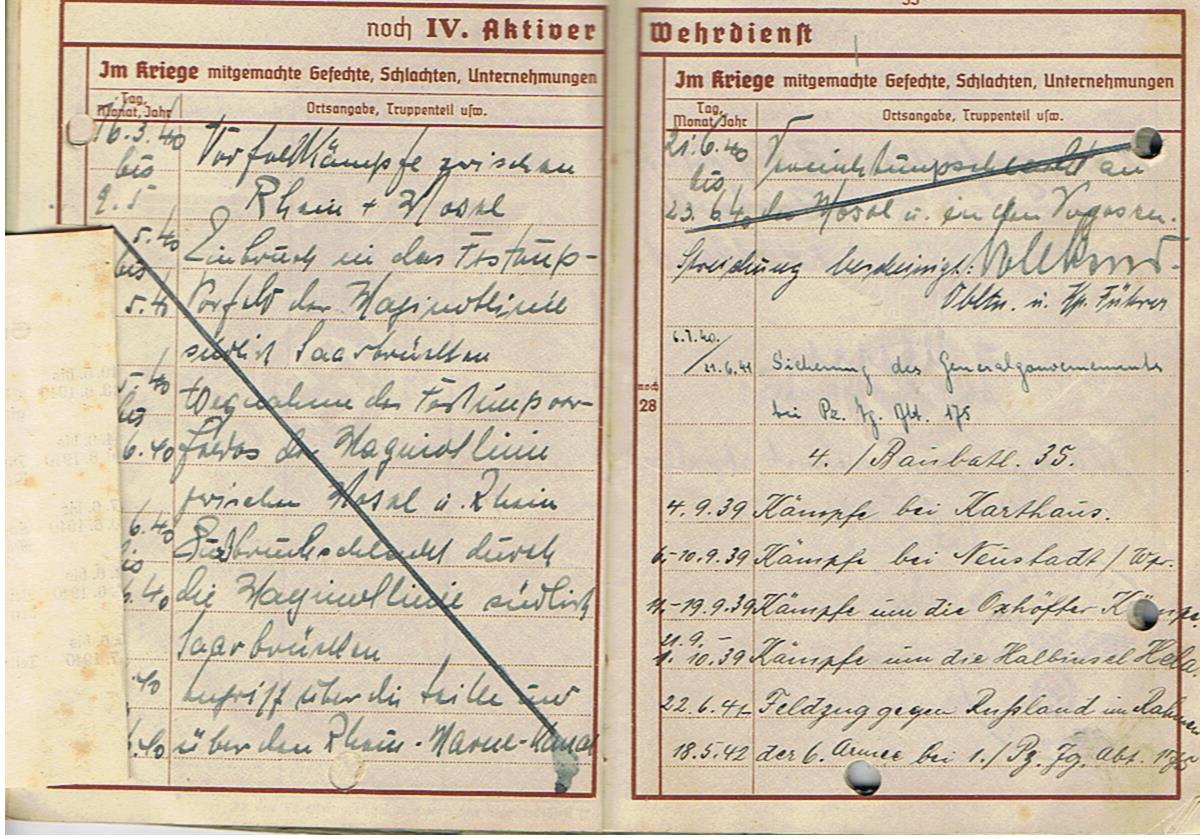 noch IV. Aktiver
Im Kriege mitgemachte Gefechte, Schlachten, Unternehmungen
Tag, Monat, Jahr
Ortsangabe, Truppenteil usw.
16.3.40 Vorfeldkämpfe zwischen
bis
9.5 Rhein + Mosel
5.40 Einbruch in das Festungs-
bis
5.40 Vorfeld der Maginotlinie
südlich Saarbrücken
5.40 Wegnahme des Festungsvor-
bis
6.40 feldes der Maginotlinie
zwischen Mosel u. Rhein
6.40 Durchbruchschlacht durch
bis
6.40 die Maginotlinie südlich
Saarbrücken
.40 Angriff über die Seille und
6.40 über den Rhein-Marne-Kanal
Wehrdienst
Im Kriege mitgemachte Gefechte, Schlachten, Unternehmungen
Tag, Monat, Jahr
Ortsangabe, Truppenteil usw.
21.6.40 Vernichtungsschlacht an
bis
23.6.40 der Mosel u. in den Vogesen.
Streichung bescheinigt:
Obltn. u. Kp. Führer
noch
28
6.7.40.
/21.6.41 Sicherung des Generalgouvernements
bei Pz. Jg. Abt. 175
4. / Baubatl. 35.
4.9.39 Kämpfe bei Karthaus.
6.-10.9.39 Kämpfe bei Neustadt / Wpr.
11.-19.9.39 Kämpfe um die Oxhöfter Kämpe.
21.9.-
1.10.39 Kämpfe um die Halbinsel Hela.
22.6.41- Feldzug gegen Rußland im Rahmen
18.5.42 der 6. Armee bei 1./Pz. Jg. Abt. 175